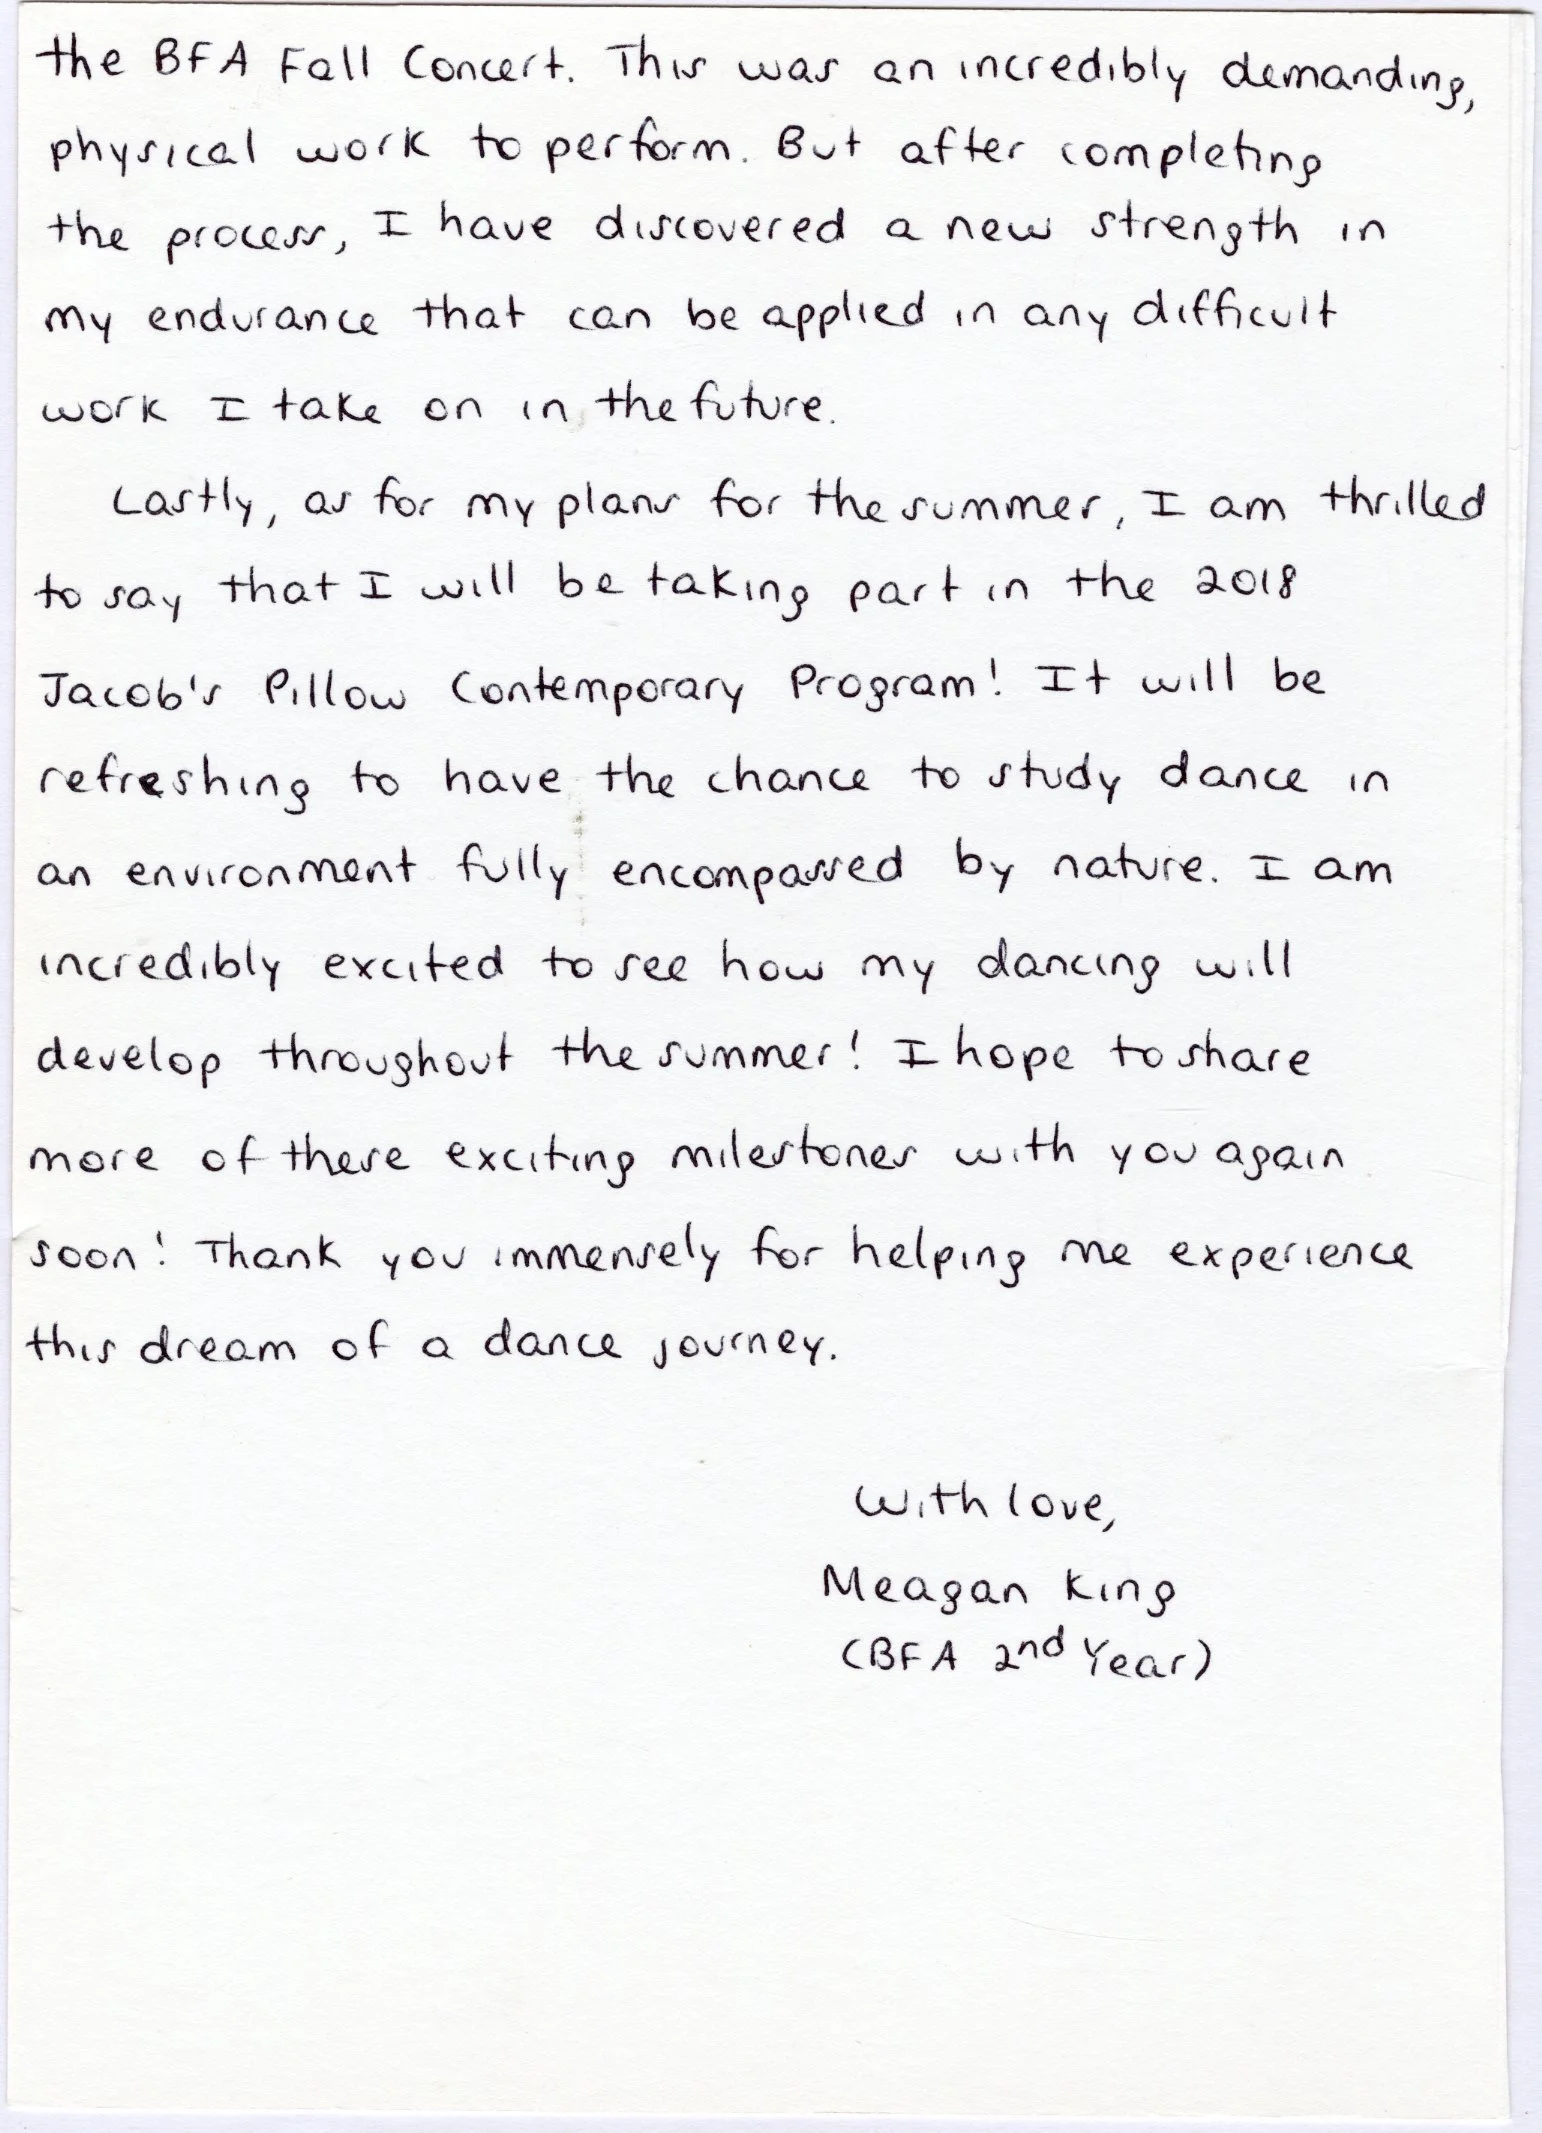 the BFA Fall Concert. This was an incredibly demanding,
physical work to perform. But after completing
the process, I have discovered a new strength in
my endurance that can be applied in any difficult
work I take on in the future.
Lastly, as for my plans for the summer, I am thrilled
to say that I will be taking part in the 2018
Jacob's Pillow Contemporary Program! It will be
refreshing to have the chance to study dance in
an environment fully encompassed by nature. I am
incredibly excited to see how my dancing will
develop throughout the summer! I hope to share
more of these exciting milestones with you again
soon! Thank you immensely for helping me experience
this dream of a dance journey.
With love,
Meagan King
(BFA 2nd Year)